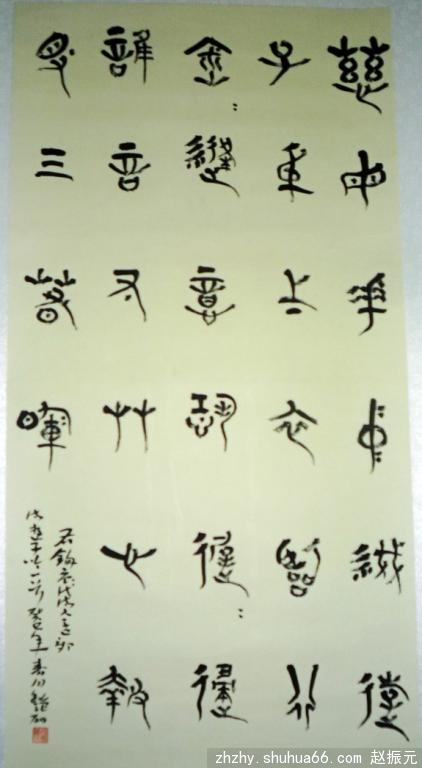 慈母手中線遊
子身上衣臨行
密〻縫意恐遲〻歸
誰言寸艸心報
得三春暉
癸巳年
zhzhy.shuhua66.com 赵振元